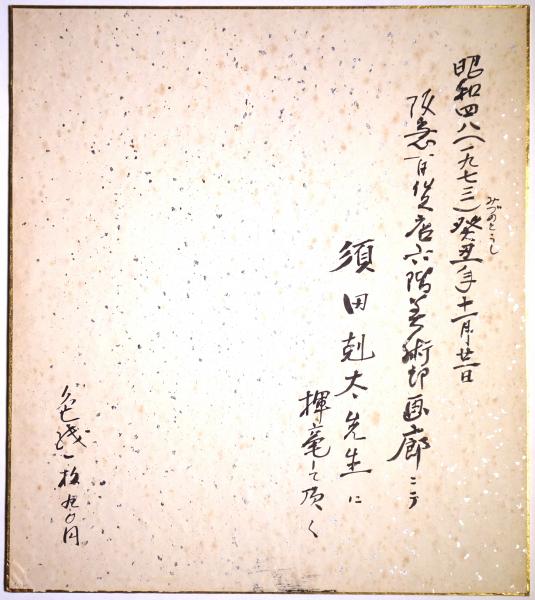 昭和四八(一九七三)癸丑年十一月廿一日
みづのとうし
阪急百貨店六階美術部画廊ニテ
須田剋太先生に
揮毫して頂く
色紙一枚九〇円